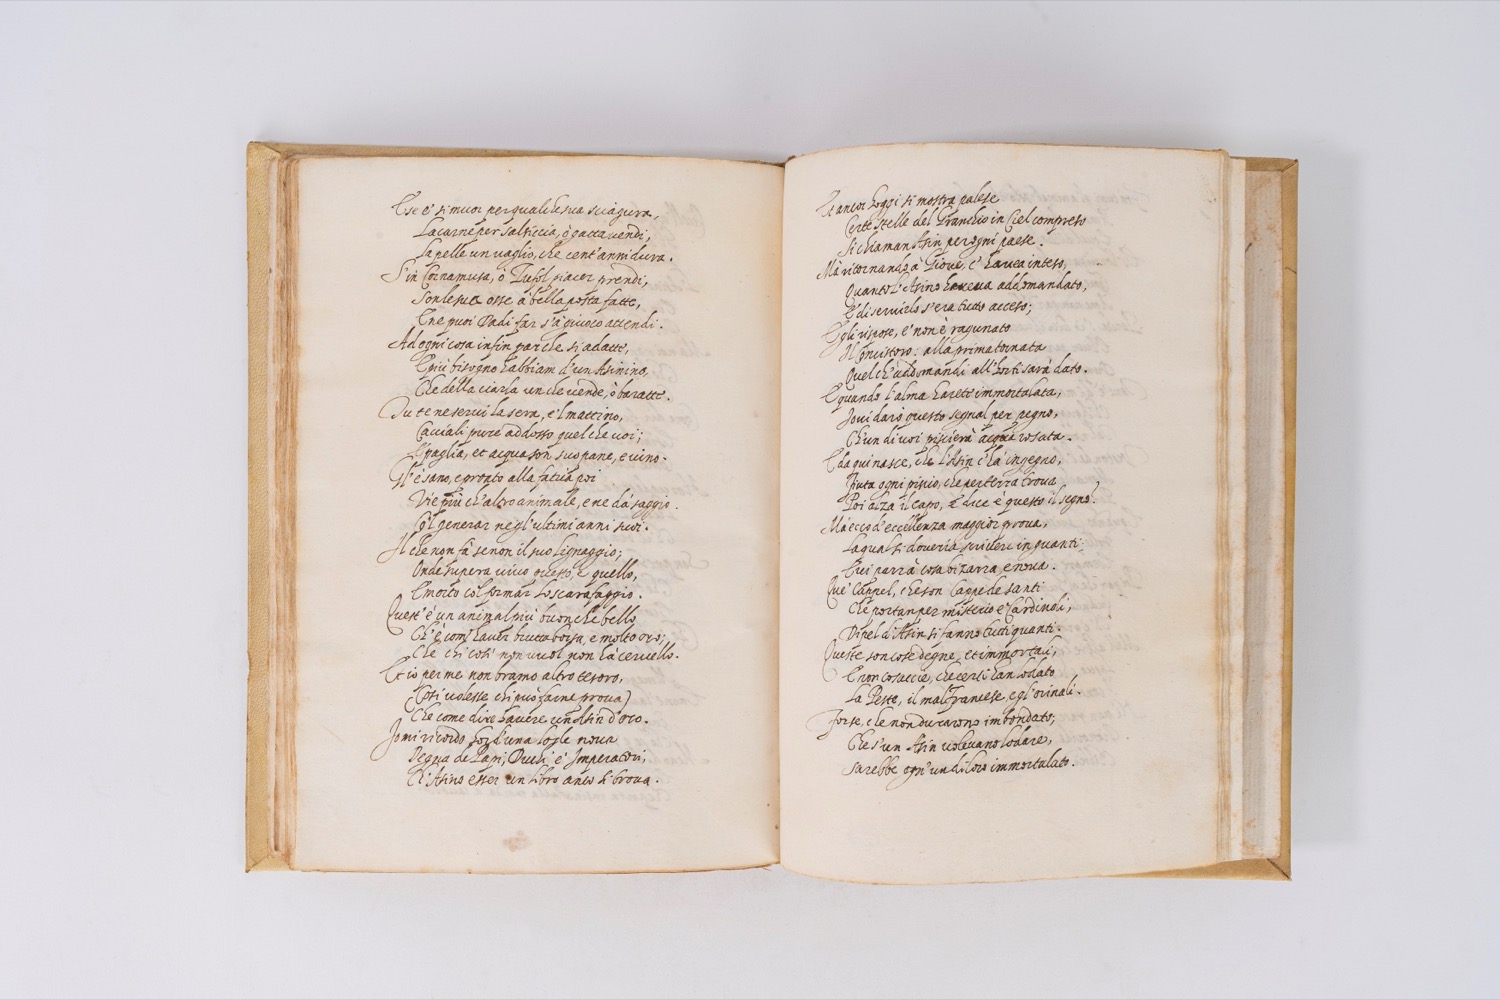 E se e' si muor per qualche sua sciagura,
La carne per salsiccia, ò gatta vendi,
La pelle un vaglio, che cent'anni dura.
S'in Cornamusa, ò Zufol piacer prendi,
Son le sue osse à bella posta fatte,
E ne puoi Dadi far s'à giuoco attendi.
Ad ogni cosa infin par che si adatte,
E più bisogno habbiam d'un Asinino,
Che della ciarla un che vende, ò baratte.
Tu te ne servi la sera, e 'l mattino,
Cacciali pure addosso quel che voi;
E paglia, et acqua son suo pane, e vino.
Gl'è sano, e pronto alla fatica poi
Vie più ch'altro animale, e ne dà saggio
Col generar negl'ultimi anni suoi.
Il che non fà se non il suo lignaggio;
Onde supera vivo questo, e quello,
E morto col formar lo scarafaggio.
Quest'è un animal più buon che bello
Ch'è com'haver brutta borsa, e molto oro;
Che chi così non vuol non hà cervello.
Et io per me non bramo altro tesoro,
(Così volesse chi può farne prova)
Che come dire havere un Asin d'oro.
Io mi ricordo d'una loggia nova
Degna de Papi, Duchi, e Imperadori,
Ch'Asino esser un libro anco si trova.
Et ancor hoggi si mostra palese
Certe stelle del Granchio in Ciel compreso
Si chiaman Asin per ogni paese.
Mà ritornando à Giove, c'havea inteso,
Quanto l'Asino haveva addomandato,
E di servirlo s'era tutto acceso;
Egli rispose, e' non è ragunato
Il Concistoro: alla prima tornata
Quel ch'addomandi all'hotti sarà dato.
E quando l'alma harete immortalata,
Io vi darò questo segnal per pegno,
Ch'un di voi piscierà acqua rosata.
E da qui nasce, che l'Asin c'hà ingegno,
Fiuta ogni piscio, che per terra trova
Poi alza il capo, e dice è questo il segno?
Mà ecco d'eccellenza maggior prova,
La qual si doveria scriver in quanti;
E vi parrà cosa bizarra, e nova.
Que' Cappel, che son cappe de santi
Che portan per misterio e' Cardinali,
Di pel d'Asin si fanno tutti quanti.
Queste son cose degne, et immortali,
E non cosaccie, che certi han lodato
La Peste, il mal Francese, e gl'orinali.
Forse, che non durarono imbondato;
Che s'un Asin volevano lodare,
Sarebbe ogn'un di loro immortalato.